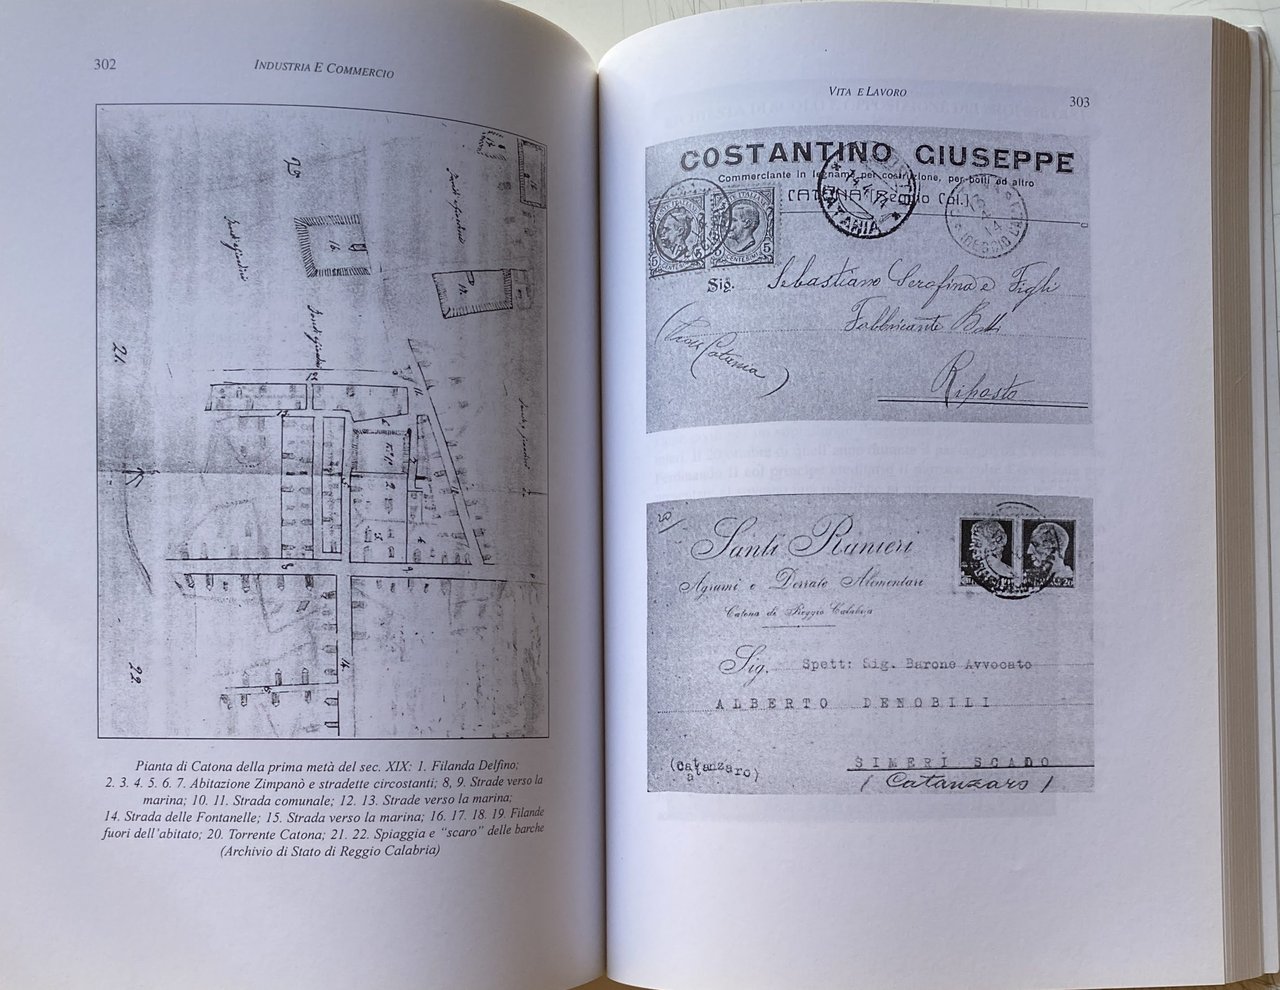 302
INDUSTRIA E COMMERCIO
20
16
17
12
13
21
22
8
9
14
Pianta di Catona della prima metà del sec. XIX: 1. Filanda Delfino;
2. 3. 4. 5. 6. 7. Abitazione Zimpanò e stradette circostanti; 8, 9. Strade verso la
marina; 10. 11. Strada comunale; 12. 13. Strade verso la marina;
14. Strada delle Fontanelle; 15. Strada verso la marina; 16. 17. 18. 19. Filande
fuori dell'abitato; 20. Torrente Catona; 21. 22. Spiaggia e "scaro" delle barche
(Archivio di Stato di Reggio Calabria)
VITA E LAVORO
303
COSTANTINO GIUSEPPE
Commerciante in legnami per costruzione, per botti ed altro
CATONA (Reggio Cal.)
CATANIA
Sig. Sebastiano Serafina e Figli
Fabbricante Botti
(Prov. Catania)
Riposto
20
Santi Ranieri
Agrumi e Derrate Alimentari
Catona di Reggio Calabria
Sig. Spett: Sig. Barone Avvocato
ALBERTO DENOBILI
(catanzaro)
SIMERI SCADO
(Catanzaro)